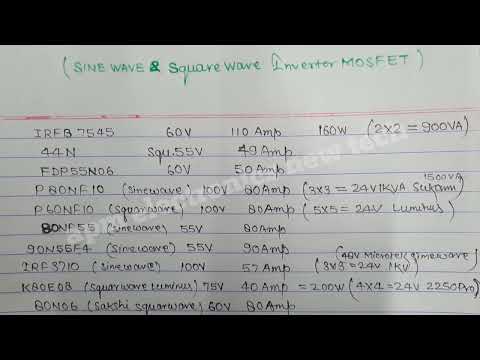 (SINE WAVE & Square Wave Inverter MOSFET)
IRFB7545 60V 110 Amp 160W (2x2 = 900VA)
44N Squ. 55V 49 Amp
FDP55N06 60V 50 Amp
1500VA
P80NF10 (sinewave) 100V 80 Amp (3x3 = 24V 1KVA Sukam)
P60NF10 (squarewave) 100V 80 Amp (5x5 = 24V Luminus)
80NF55 (sinewave) 55V 80 Amp
90N55F4 (sinewave) 55V 90 Amp
(48V Microtek sinewave)
IRF3710 (sinewave) 100V 57 Amp (3x3 = 24V 1KV)
K80E08 (squarwave Luminus) 75V 40 Amp = 200W (4x4 = 24V 2250Pro)
80N06 (Sakshi squarwave) 60V 80 Amp